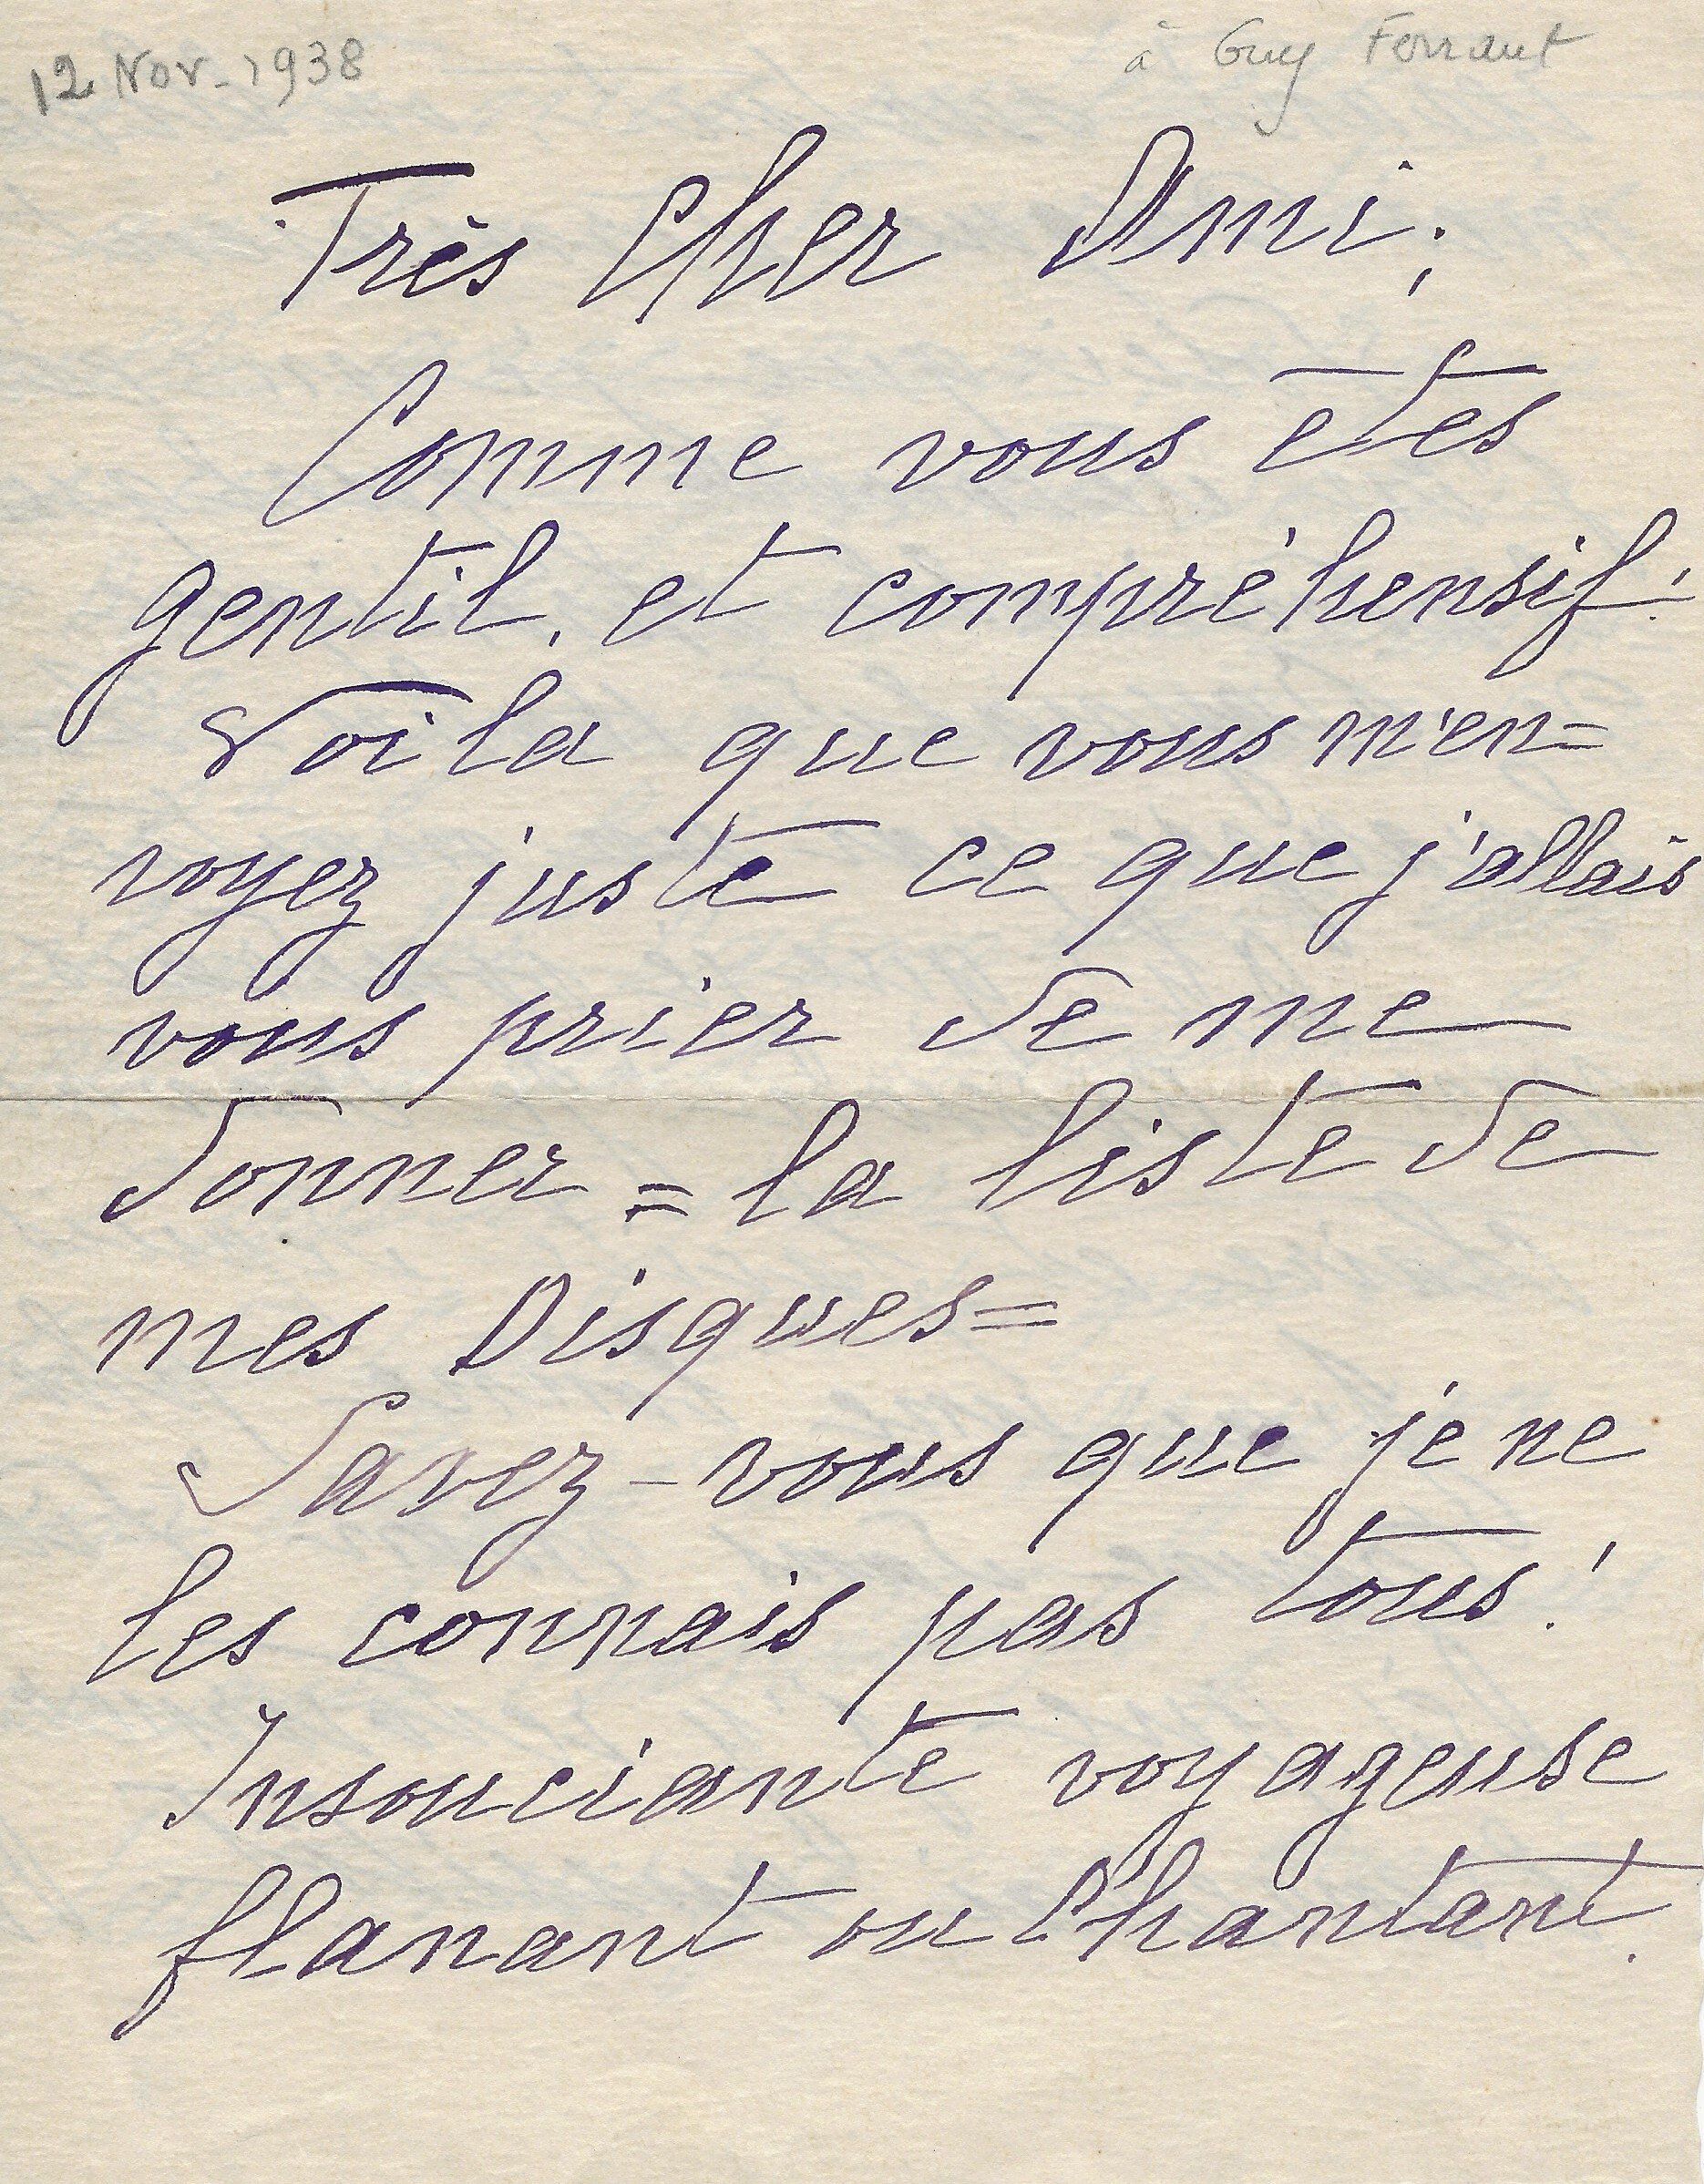 12 Nov. 1938
à Guy Ferrant
Très Cher Ami;
Comme vous êtes
gentil, et compréhensif!
Voila que vous m'en=
voyez juste ce que j'allais
vous prier de me
donner = la liste de
mes Disques =
Savez-vous que je ne
les connais pas tous!
Insouciante voyageuse
flanant ou Chantant.